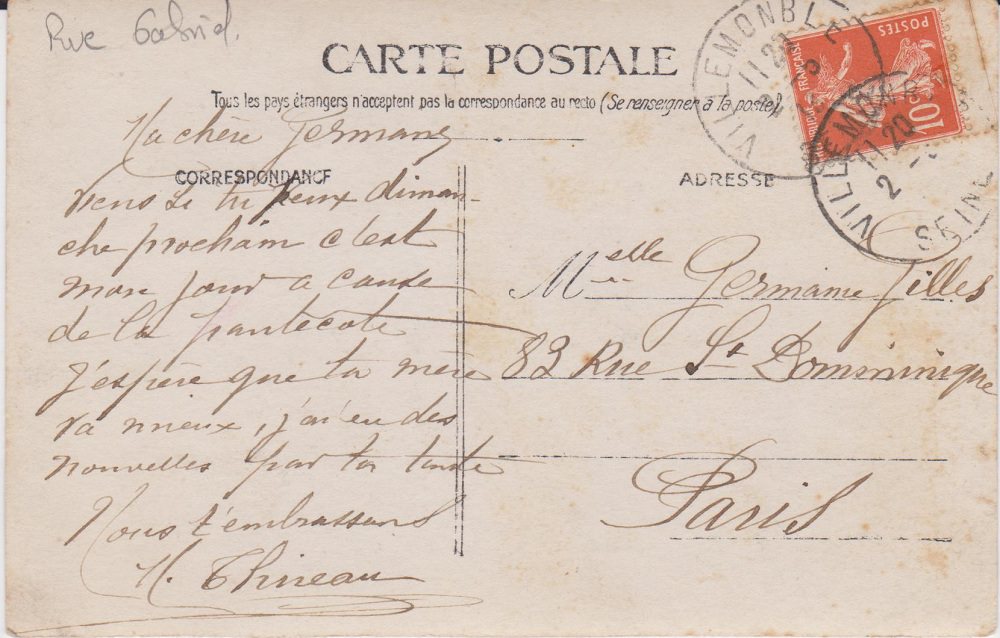 Rue Gabriel.
CARTE POSTALE
Tous les pays étrangers n'acceptent pas la correspondance au recto (Se renseigner à la poste)
Ma chère Germaine
CORRESPONDANCE
viens si tu peux diman-
che prochain c'est
mon jour a cause
de la pantecote
j'espère que ta mère
va mieux, j'ai eu des
nouvelles par ta tante
Nous t'embrassons
H. Thineau
ADRESSE
Melle Germaine Gilles
83 Rue St Dominique
Paris
VILLEMOMBLE
11 20
POSTES
10c
VILLEMOMB
11 20
2
SEINE